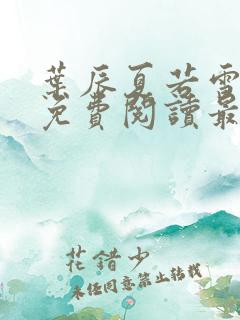 葉辰夏若雪
免費閱讀最
花錯少
未經同意禁止轉載